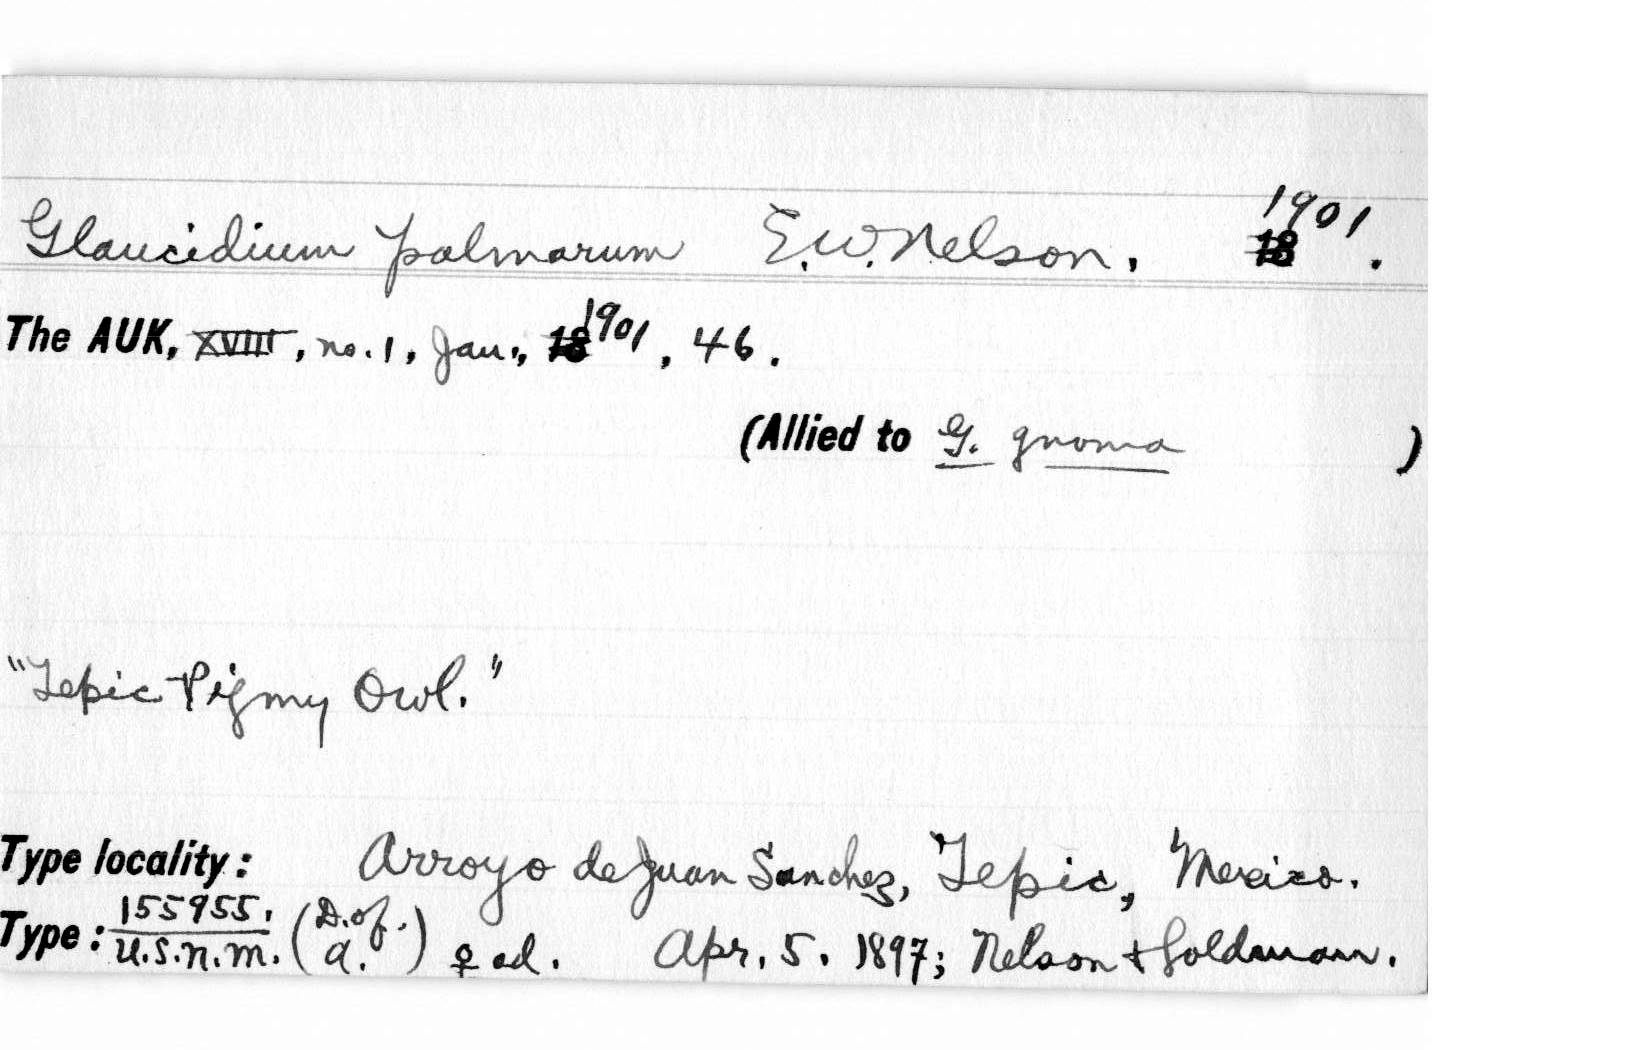 Glaucidium palmarum E.W. Nelson, 1901.
The AUK, XVIII, no. 1, Jan., 1901, 46.
(Allied to G. gnoma )
"Tepic Pigmy Owl."
Type locality: Arroyo de Juan Sanchez, Tepic, Mexico.
Type: 155955. U.S.N.M. (D. of A.) ♀ ad. Apr. 5. 1897; Nelson + Goldman.